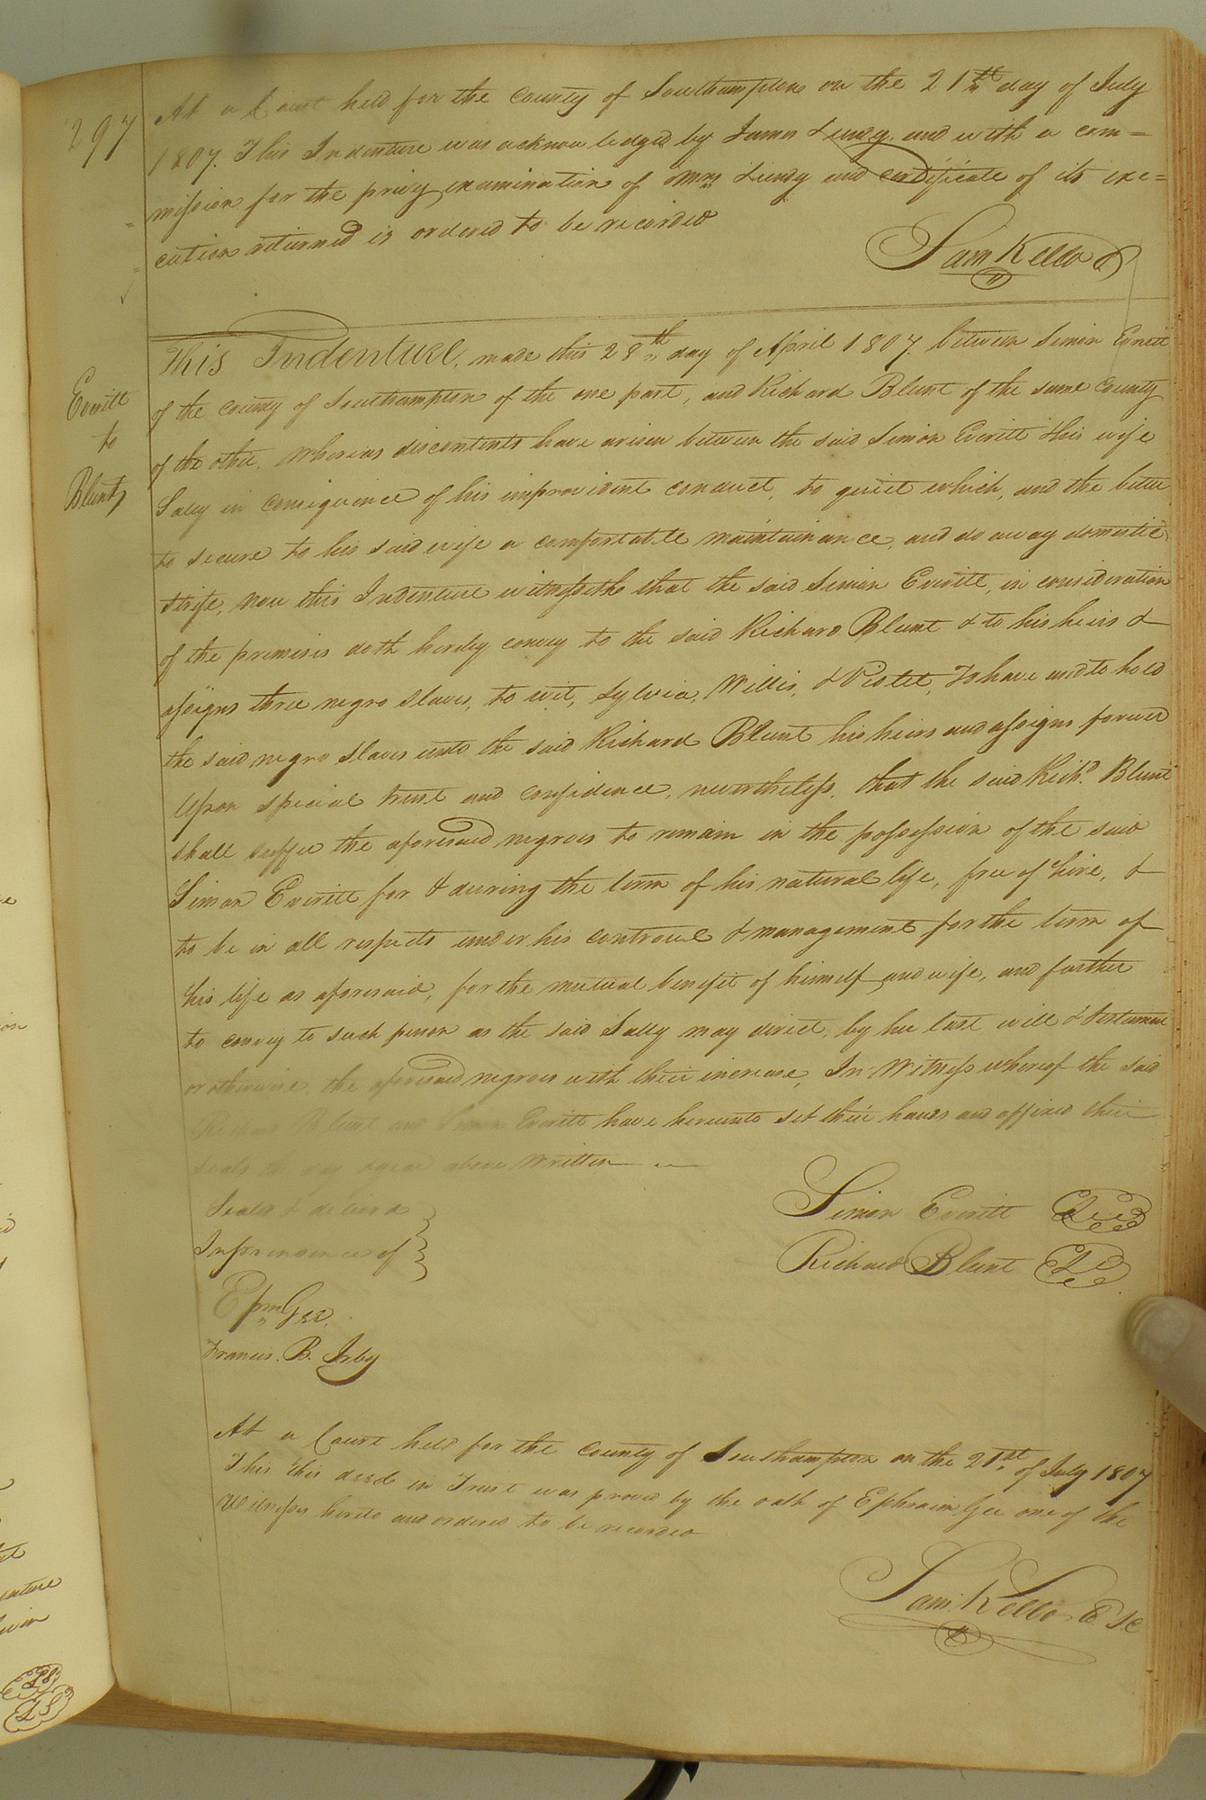 297
At a Court held for the County of Southampton on the 21st day of July
1807. This Indenture was acknowledged by James and with a com=
mission for the privy examination of Mrs. and certificate of its exe=
cution returned is ordered to be recorded
Sam Kello
Everitt
to
Blunt
This Indenture, made this 28th day of April 1807. between Simon Everitt
of the County of Southampton of the one part, and Richard Blunt of the same County
of the other. Whereas discontents have arisen between the said Simon Everitt & his wife
Sally in consequence of his improvident conduct, to quiet which, and the better
to secure to his said wife a comfortable maintainance, and do away domestic
strife, now this Indenture witnesseth that the said Simon Everitt, in consideration
of the premises doth hereby convey to the said Richard Blunt & to his heirs &
assigns three negro slaves, to wit, Sylvia, Willis, & To have and to hold
the said negro slaves unto the said Richard Blunt his heirs and assigns forever
Upon special trust and confidence, nevertheless, that the said Richd. Blunt
shall suffer the aforesaid negroes to remain in the possession of the said
Simon Everitt for & during the term of his natural life, free of hire, &
to be in all respects under his controul & management for the term of
his life as aforesaid, for the mutual benefit of himself and wife, and further
to convey to such person as the said Sally may direct, by her last will & testament
or otherwise, the aforesaid negroes with their increase, In Witness whereof the said
Richard Blunt and Simon Everitt have hereunto set their hands and affixed their
seals the day & year above written
Simon Everitt LS
Richard Blunt LS
Seald & deliverd
In presence of
Epm Gee.
Francis. B. Irby
At a Court held for the County of Southampton on the 21st. of July 1807
This this deed in Trust was proved by the oath of Ephraim Gee one of the
Witnesses hereto and ordered to be recorded
Sam: Kello
LS
LS